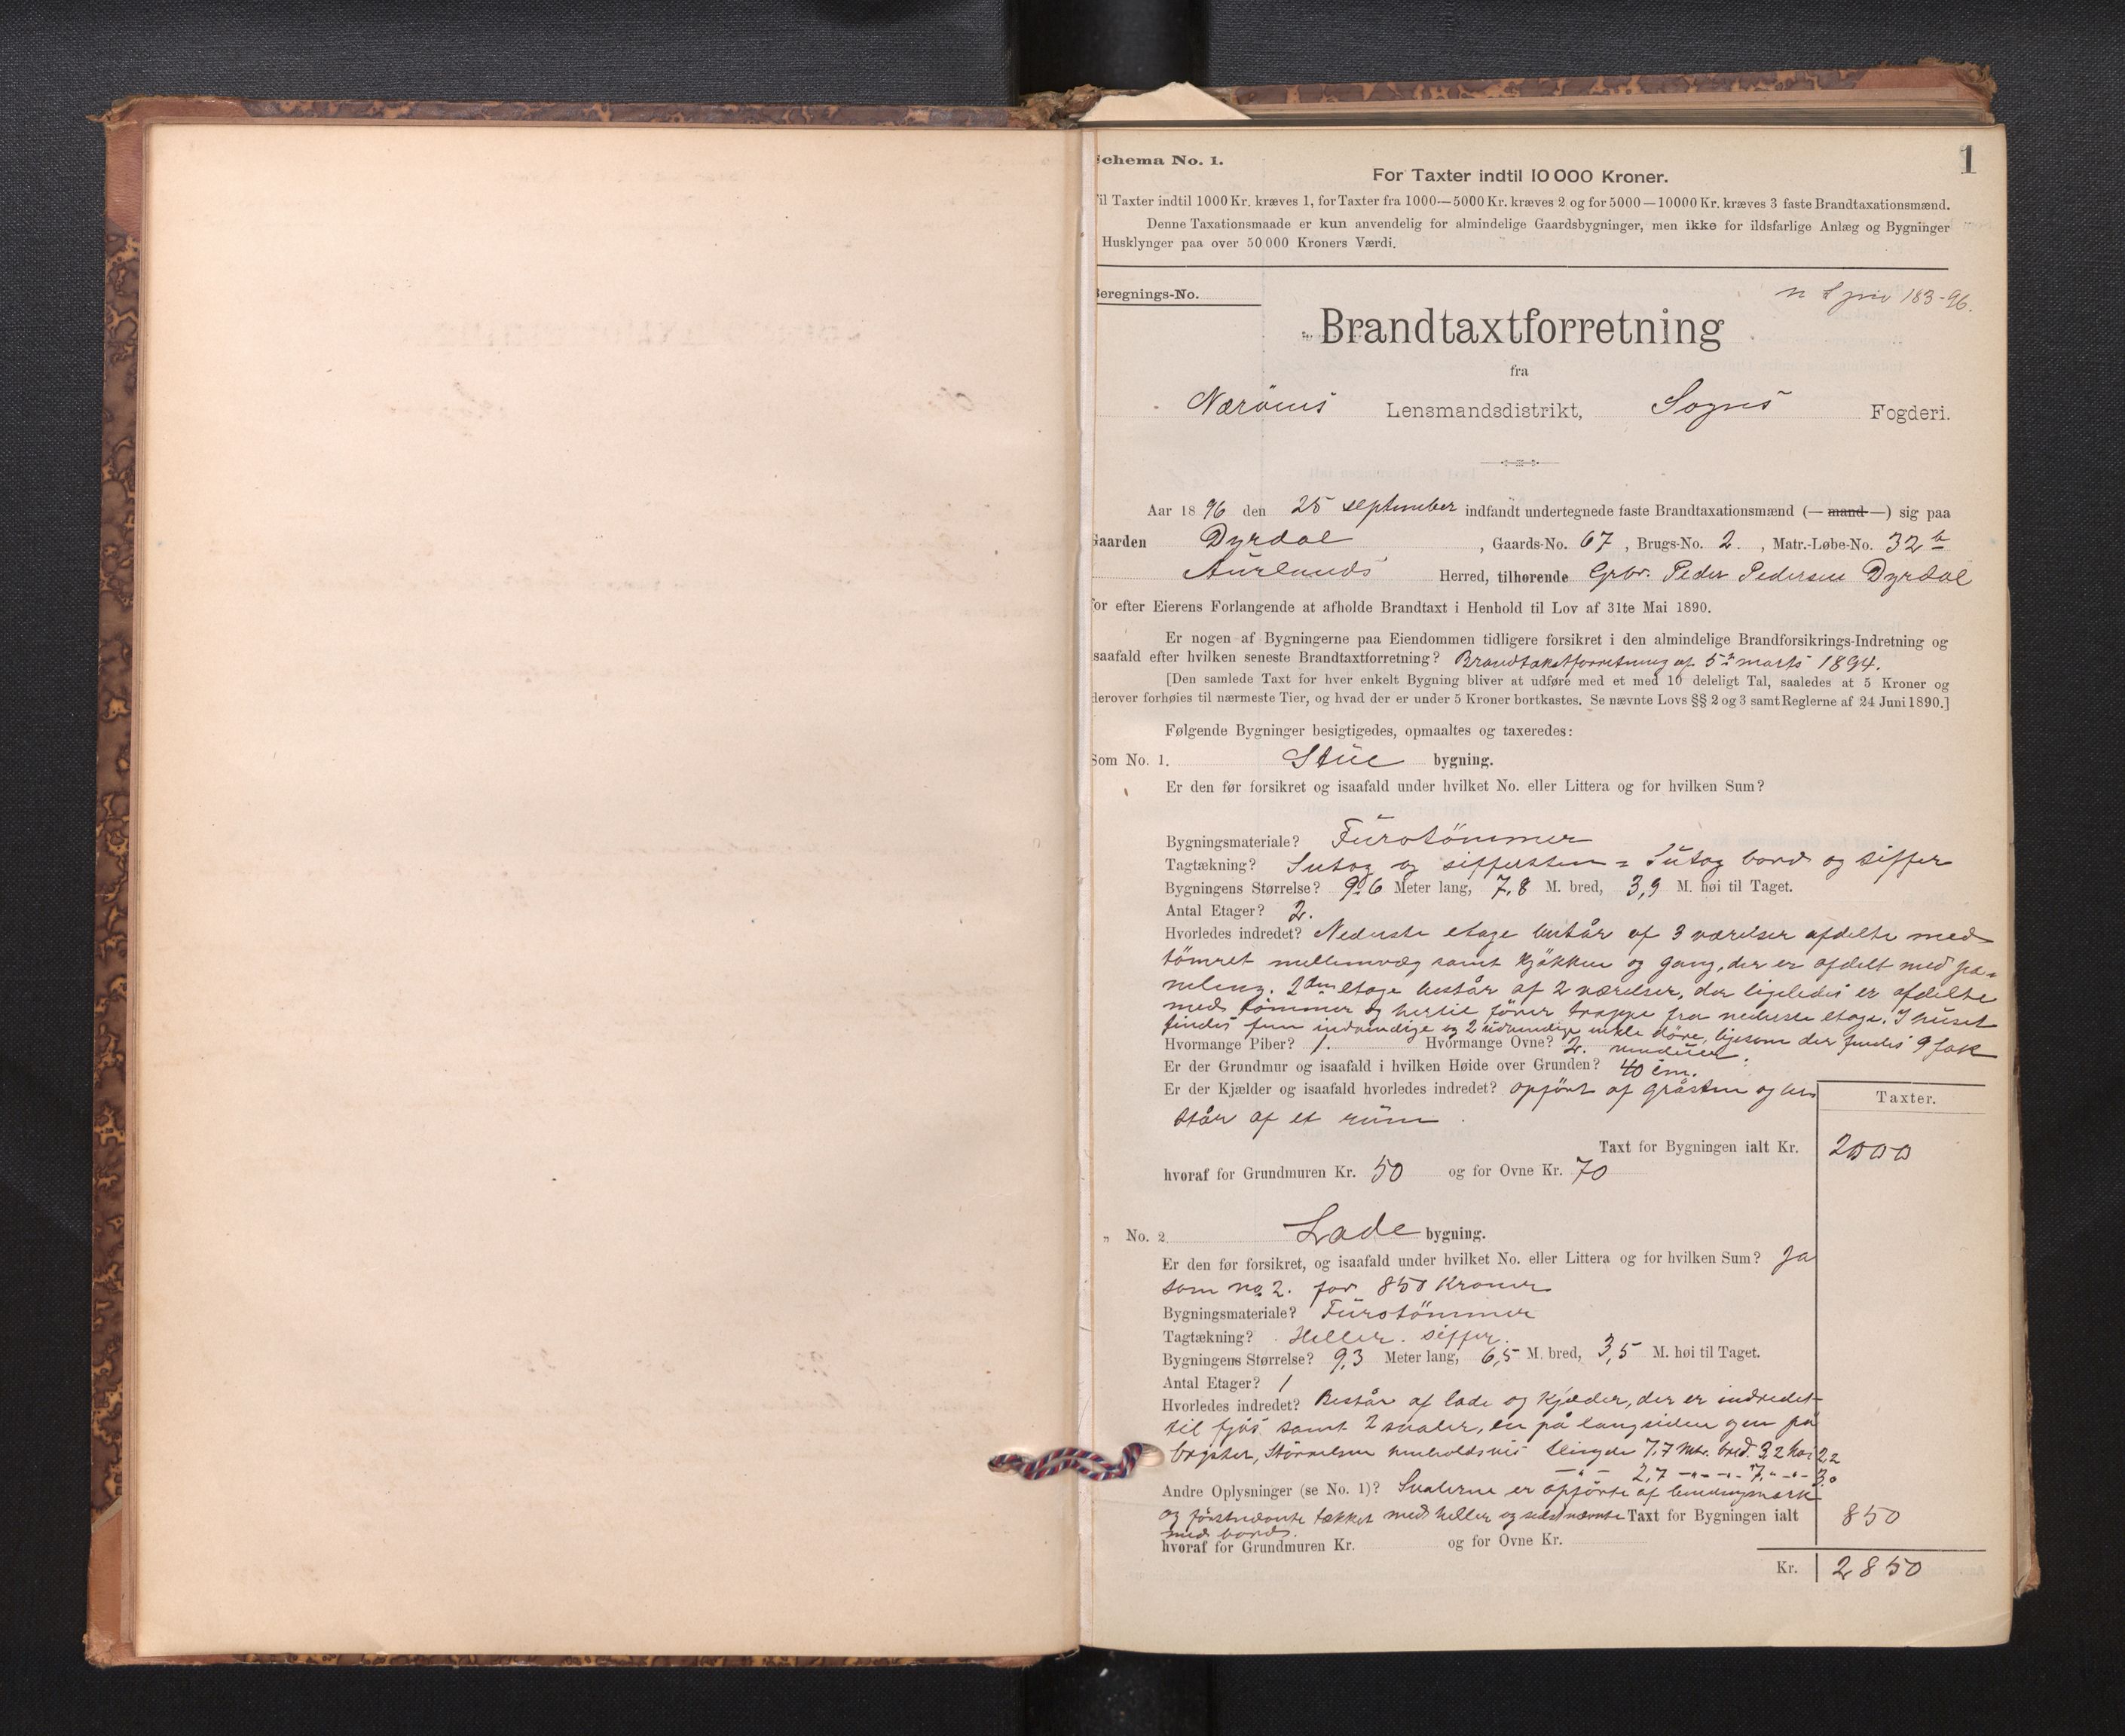 1
Schema No. 1.
For Taxter indtil 10 000 Kroner.
Til Taxter indtil 1000 Kr. kræves 1, for Taxter fra 1000—5000 Kr. kræves 2 og for 5000—10000 Kr. kræves 3 faste Brandtaxationsmænd.
Denne Taxationsmaade er kun anvendelig for almindelige Gaardsbygninger, men ikke for ildsfarlige Anlæg og Bygninger
Husklynger paa over 50 000 Kroners Værdi.
Beregnings-No.
183-96.
Brandtaxtforretning
fra
Nærøens Lensmandsdistrikt, Sogns Fogderi.
Aar 1896 den 25 september indfandt undertegnede faste Brandtaxationsmænd (— mand —) sig paa
Gaarden Dyrdal, Gaards-No. 67, Brugs-No. 2., Matr.-Løbe-No. 32b
Aurlands Herred, tilhørende Grbr. Peder Pedersen Dyrdal
for efter Eierens Forlangende at afholde Brandtaxt i Henhold til Lov af 31te Mai 1890.
Er nogen af Bygningerne paa Eiendommen tidligere forsikret i den almindelige Brandforsikrings-Indretning og
isaafald efter hvilken seneste Brandtaxtforretning? Brandtakstforretning af 5te marts 1894.
[Den samlede Taxt for hver enkelt Bygning bliver at udføre med et med 10 deleligt Tal, saaledes at 5 Kroner og
derover forhøies til nærmeste Tier, og hvad der er under 5 Kroner bortkastes. Se nævnte Lovs §§ 2 og 3 samt Reglerne af 24 Juni 1890.]
Følgende Bygninger besigtigedes, opmaaltes og taxeredes:
Som No. 1. Stue bygning.
Er den før forsikret og isaafald under hvilket No. eller Littera og for hvilken Sum?
Bygningsmateriale? Furotömmer
Tagtækning? Sutag og siffersten = Sutag bord og siffer
Bygningens Størrelse? 9,6 Meter lang, 7,8 M. bred, 3,9 M. høi til Taget.
Antal Etager? 2.
Hvorledes indredet? Nederste etage består af 3 værelser afdelte med
tömret mellemvæg samt kjökken og gang, der er afdelt med pa-
neling. 2den etage består af 2 værelser, der ligeledes er afdelte
med tömmer og hertil förer trappe fra nederste etage. I huset
findes fem indvendige og 2 udvendige enkle döre, ligesom der findes 9 fak
Hvormange Piber? 1. Hvormange Ovne? 2. vinduer.
Er der Grundmur og isaafald i hvilken Høide over Grunden? 40 cm.
Er der Kjælder og isaafald hvorledes indredet? opfört af gråsten og be-
står af et rum
Taxter.
Taxt for Bygningen ialt Kr. 2000
hvoraf for Grundmuren Kr. 50 og for Ovne Kr. 70
„ No. 2 Lade bygning.
Er den før forsikret, og isaafald under hvilket No. eller Littera og for hvilken Sum? Ja
som no 2. for 850 Kroner
Bygningsmateriale? Furotömmer
Tagtækning? Heller. siffer.
Bygningens Størrelse? 9,3 Meter lang, 6,5 M. bred, 3,5 M. høi til Taget.
Antal Etager? 1
Hvorledes indredet? Består af lade og kjælder, der er indredet
til fjös samt 2 svaler, en på langsiden og en på
Störrelsen henholdsvis længde 7,7 mtr. bred. 3,2 höi 2,2
2,7 7, 3,0
Andre Oplysninger (se No. 1)? Svalerne er opförte af bindingsverk
og förstnævnte tækket med heller og sidstnævnte Taxt for Bygningen ialt 850
med bord.
hvoraf for Grundmuren Kr. og for Ovne Kr.
Kr. 2850